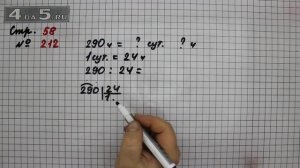 4APS.RU
Стр. 58
№ 212
290 ч = ? сут. ? ч
1 сут. = 24 ч
290 : 24 =
290 | 24
1.